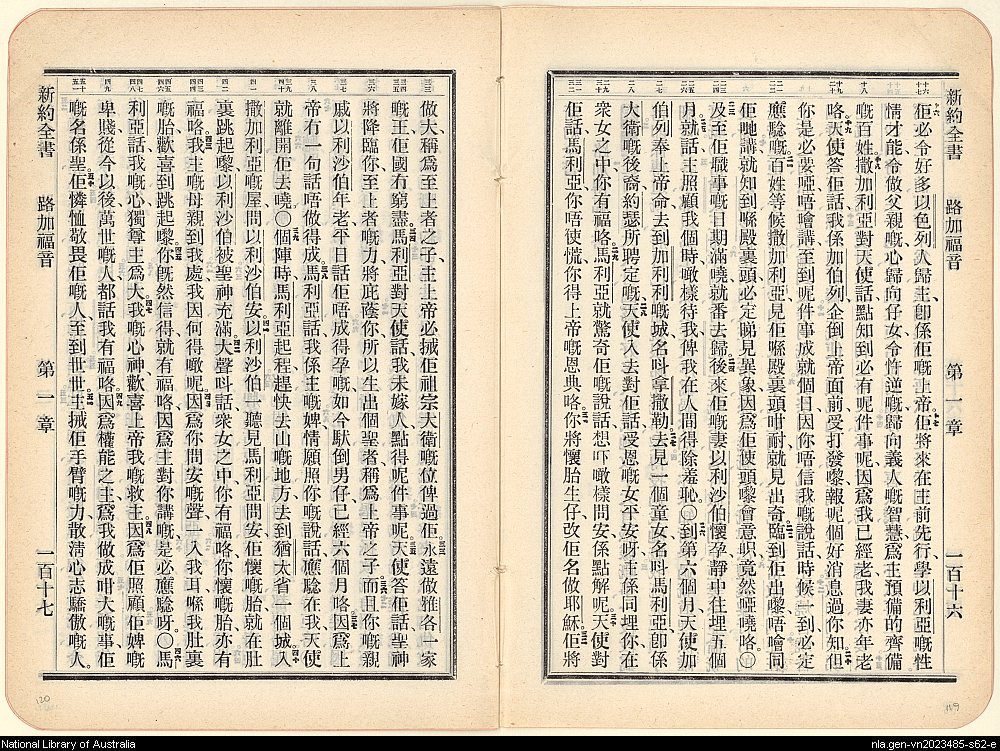 新約全書　路加福音　第一章　一百十六
佢必令好多以色列人歸主、卽係佢嘅上帝。佢將來在主前先行、學以利亞嘅性
情才能、令做父親嘅心歸向仔女、令忤逆嘅歸向義人嘅智慧、爲主預備的齊備
嘅百姓。撒加利亞對天使話、點知到必有呢件事呢、因爲我已經老、我妻亦年老
咯。天使答佢話、我係加伯列、企倒上帝面前、受打發嚟報呢個好消息過你知。但
你是必要啞、唔噲講、至到呢件事成就個日、因你唔信我嘅說話、時候一到、必定
應驗嘅。百姓等候撒加利亞、見佢喺殿裏頭咁耐、就見出奇。臨到佢出嚟、唔噲同
佢哋講、就知到喺殿裏頭必定睇見異象、因爲佢使頭嚟會意、呮竟然啞嘵咯。○
及至佢職事嘅日期滿嘵、就番去歸。後來佢嘅妻以利沙伯懷孕、靜中住埋五個
月、就話、主照顧我個時、噉樣待我、俾我在人間得除羞恥。○到第六個月、天使加
伯列奉上帝命、去到加利利嘅城、名叫拿撒勒、去見一個童女、名叫馬利亞、卽係
大衛嘅後裔約瑟所聘定嘅。天使入去對佢話、受恩嘅女、平安呀、主係同埋你、在
衆女之中你有福咯。馬利亞就驚奇佢嘅說話、想吓噉樣問安係點解呢。天使對
佢話、馬利亞、你唔使慌、你得上帝嘅恩典咯。你將懷胎生仔、改佢名做耶穌。佢將
新約全書　路加福音　第一章　一百十七
做大、稱爲至上者之子、主上帝必摵佢祖宗大衛嘅位俾過佢。永遠做雅各一家
嘅王、佢國冇窮盡。馬利亞對天使話、我未嫁人、點得呢件事呢。天使答佢話、聖神
將降臨你、至上者嘅力將庇蔭你、所以生出個聖者、稱爲上帝之子、而且你嘅親
戚以利沙伯年老、平日話佢唔成得孕嘅、如今馱倒男仔已經六個月咯。因爲上
帝冇一句話唔做得成。馬利亞話、我係主嘅婢、情願照你嘅說話應驗在我、天使
就離開佢去嘵。○個陣時、馬利亞起程、趕快去山嘅地方、去到猶太省一個城、入
撒加利亞嘅屋、問以利沙伯安。以利沙伯一聽見馬利亞問安、佢懷嘅胎就在肚
裏跳起嚟、以利沙伯被聖神充滿、大聲叫話、衆女之中你有福咯、你懷嘅胎亦有
福咯。我主嘅母親到我處、我因何得噉呢。因爲你問安嘅聲一入我耳、喺我肚裏
嘅胎歡喜到跳起嚟。你旣然信得、就有福咯、因爲主對你講嘅是必應驗呀。○馬
利亞話、我嘅心獨尊主爲大、我嘅心神歡喜上帝我嘅救主。因爲佢照顧佢婢嘅
卑賤、從今以後萬世嘅人、都話我有福咯。因爲權能之主、爲我做成咁大嘅事、佢
嘅名係聖。佢憐恤敬畏佢嘅人、至到世世。主摵佢手臂嘅力、散淸心志驕傲嘅人。
120
119
National Library of Australia
nla.gen-vn2023485-s62-e